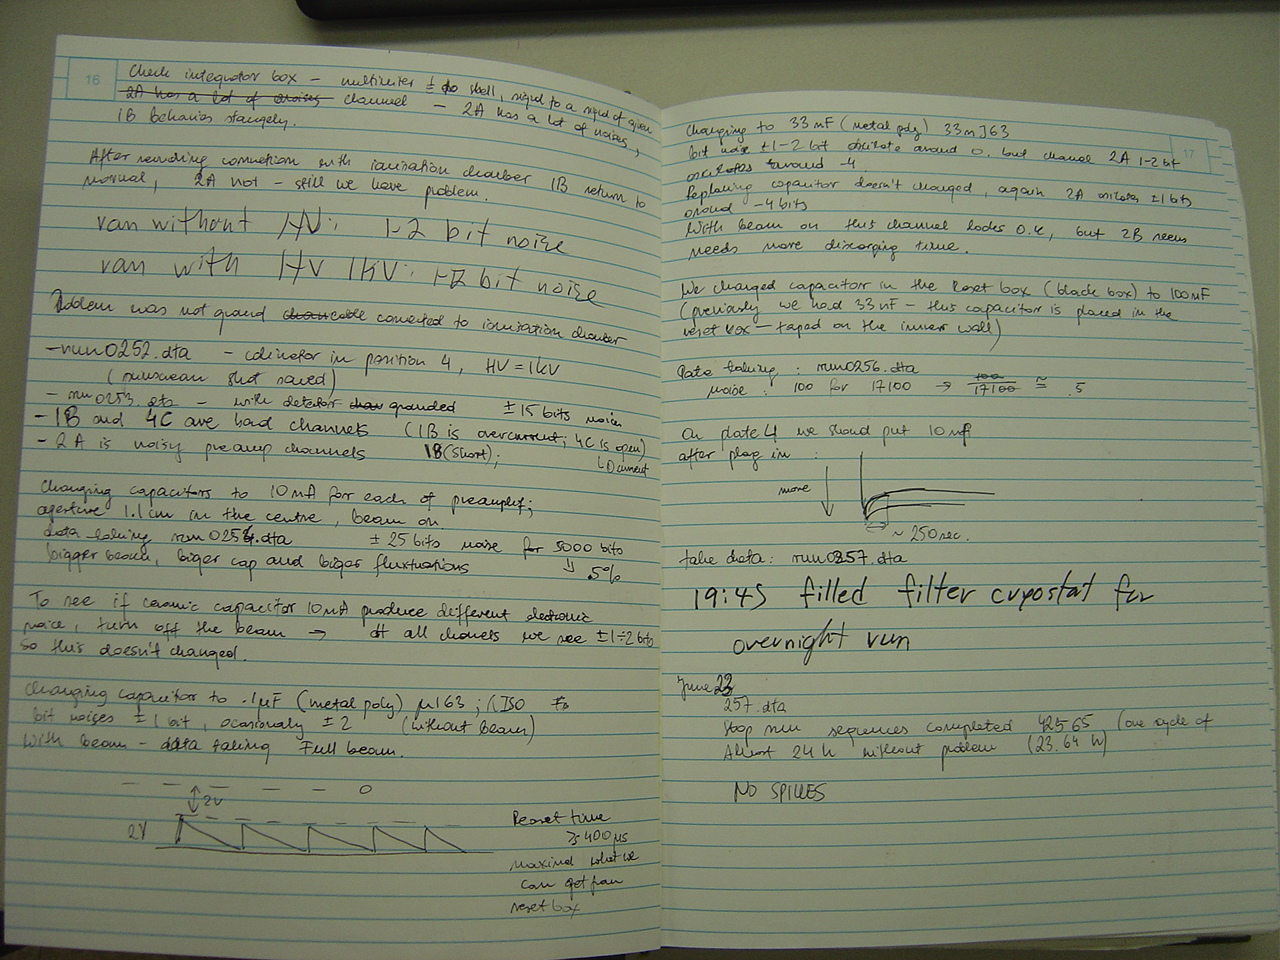 16
Check integrator box - multimeter ± to shell, signal to a signal of given
2A has a lot of noises channel - 2A has a lot of noises,
1B behaves stangely.
After remouving connection with ionisation chamber 1B return to
normal, 2A not - still we have problem.
ran without HV: 1-2 bit noise
ran with HV 1kV: 1-2 bit noise
Problem was not ground cable connected to ionisation chamber
- run0252.dta - colimator in position 4, HV = 1kV
( shot saved)
- run0253.dta - with detector grounded ±15 bits noise
- 1B and 4C are bad channels (1B is overcurrent; 4C is open)
- 2A is noisy preamp channels 1B (short); 0 current
Changing capacitors to 10 nA for each of preamplif;
aperture 1.1 cm in the centre, beam on
data taking run0254.dta ± 25 bits noise for 5000 bits
bigger beam, biger cap and biger fluctuations ⇓ .5%
To see if ceramic capacitor 10nA produce different electronic
noise, turn off the beam → at all chanels we see ±1÷2 bits
so this doesn't changed.
Changing capacitor to .1μF (metal poly) μ163; (ISO
bit noises ± 1 bit, ocasionaly ± 2 (without beam)
With beam - data taking Full beam.
0
2V
2V
Reset time
≥400μs
maximal what we
can get from
reset box
17
Changing to 33 nF (metal poly) 33nJ63
bit noise ±1-2 bit oscilate around 0, but chanel 2A 1-2 bit
oscilates around -4
Replacing capacitor doesn't changed, again 2A oscilates ±1 bits
around -4 bits
With beam on this channel looks O.K, but 2B seem
needs more discarging time.
We changed capacitor in the Reset box (black box) to 100nF
(previously we had 33 nF - this capacitor is placed in the
reset box - taped on the inner wall)
Data taking: run0256.dta
noise: 100 for 17100 → 100/17100 ≅ .5
On plate 4 we should put 10 nF
after plug in:
more
~ 250 sec.
take data: run0257.dta
19:45 filled filter cryostat for
overnight run
June 23
257.dta
Stop run sequences completed 42565 (one cycle of
Almost 24 h without problem (23.64 h)
NO SPIKES